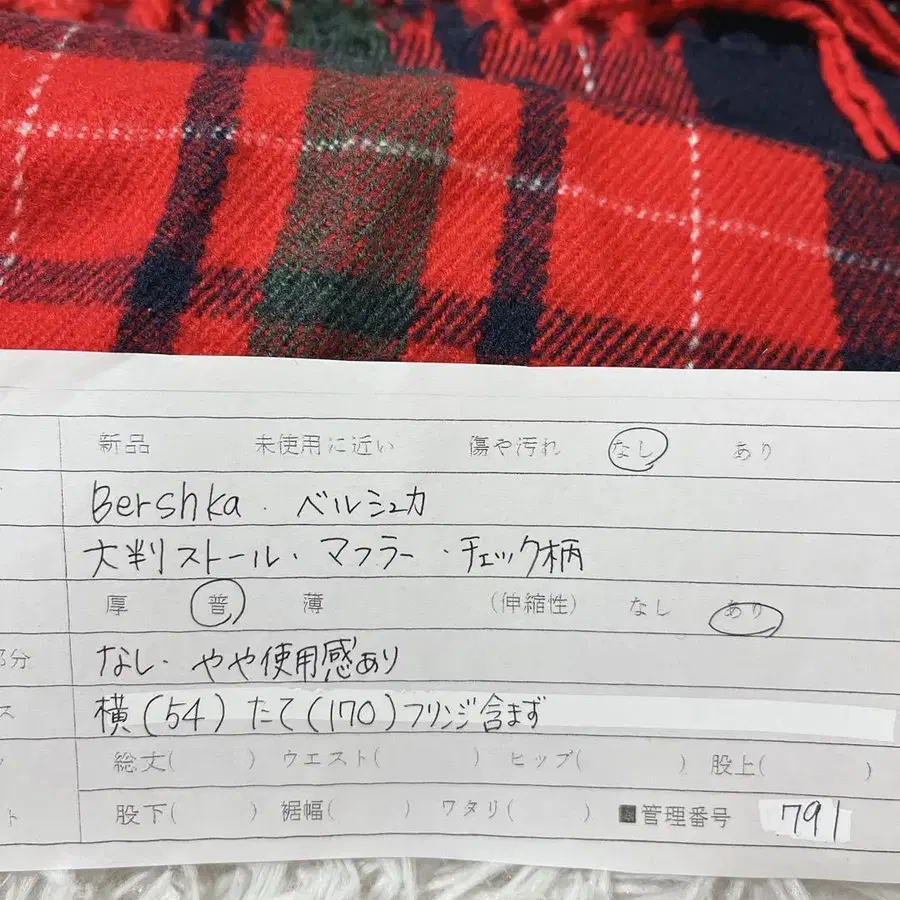 新品 未使用に近い 傷や汚れ なし あり
Bershka. ベルシュカ
大判ストール・マフラー・チェック柄
厚 普 薄 (伸縮性) なし あり
部分 なし・やや使用感あり
ス 横(54)たて(170)フリンジ含まず
総丈( ) ウエスト( ) ヒップ( ) 股上( )
ト 股下( ) 裾幅( ) ワタリ( ) ■管理番号 791